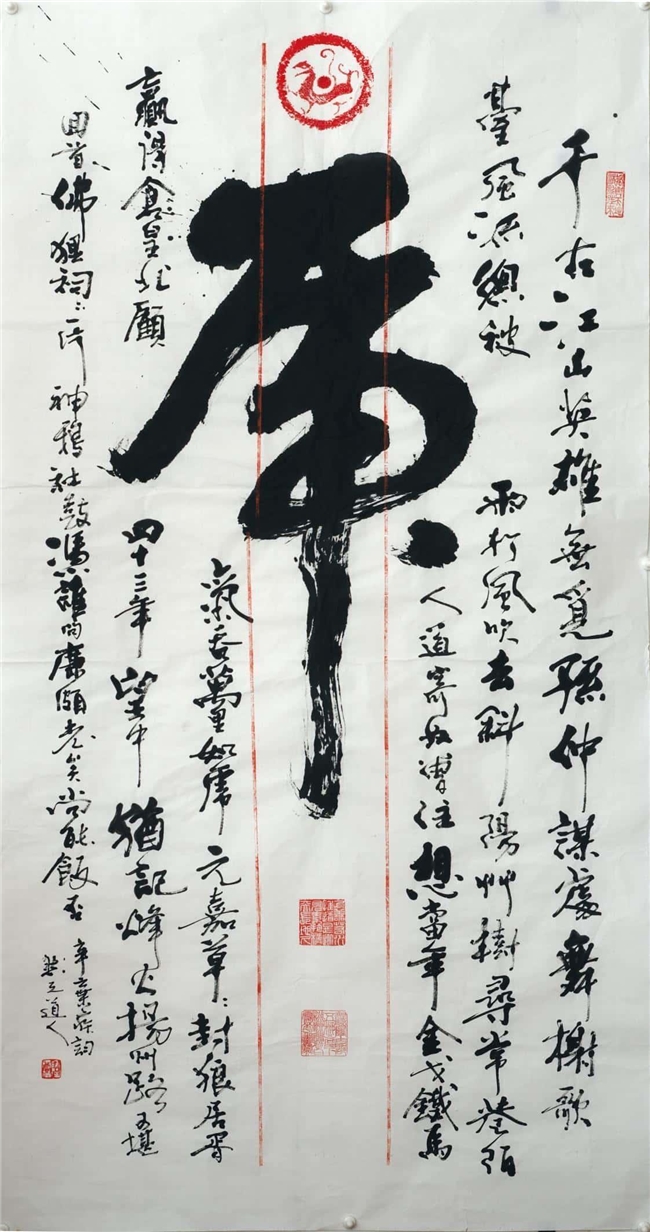 千古江山英雄無覓孫仲謀處舞榭歌
臺風流總被
雨打風吹去斜陽艸樹尋常巷陌
人道寄奴曾住想當年金戈鐵馬
虎
氣吞萬里如虎元嘉草〻封狼居胥
贏得倉皇北顧
四十三年望中猶記烽火揚州路可堪
回首佛狸祠下一片神鴉社鼓憑誰問廉頗老矣尚能飯否
辛棄疾詞
道人